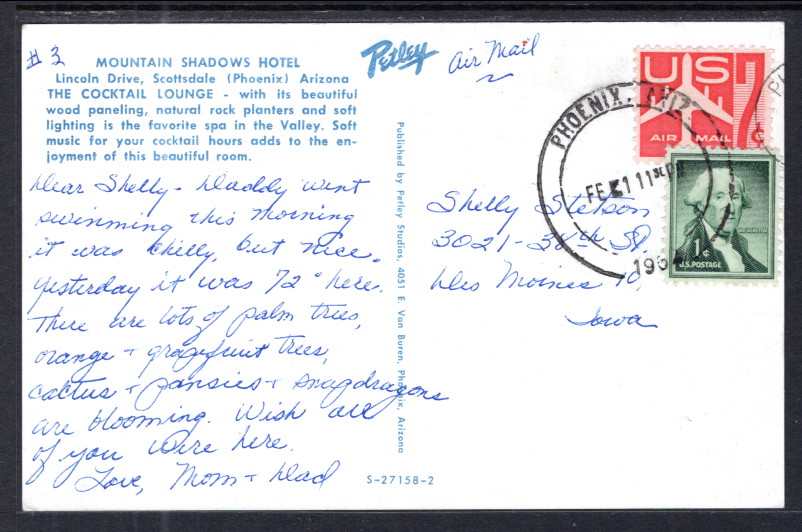 #3
MOUNTAIN SHADOWS HOTEL
Lincoln Drive, Scottsdale (Phoenix) Arizona
THE COCKTAIL LOUNGE - with its beautiful
wood paneling, natural rock planters and soft
lighting is the favorite spa in the Valley. Soft
music for your cocktail hours adds to the en-
joyment of this beautiful room.
Dear Shelly - Daddy went
swimming this morning
it was chilly, but nice.
Yesterday it was 72° here.
There are lots of palm trees,
orange + grapefruit trees,
cactus + pansies + snapdragons
are blooming. Wish all
of you were here.
Love, Mom + Dad
Petley
Published by Petley Studios, 4051 E. Van Buren, Phoenix, Arizona
S-27158-2
Air Mail
US
7¢
AIR MAIL
PHOENIX, ARIZ
FE 1 11
196
1¢
U.S. POSTAGE
WASHINGTON
Shelly Stetson
3021-38th St
Des Moines 10,
Iowa